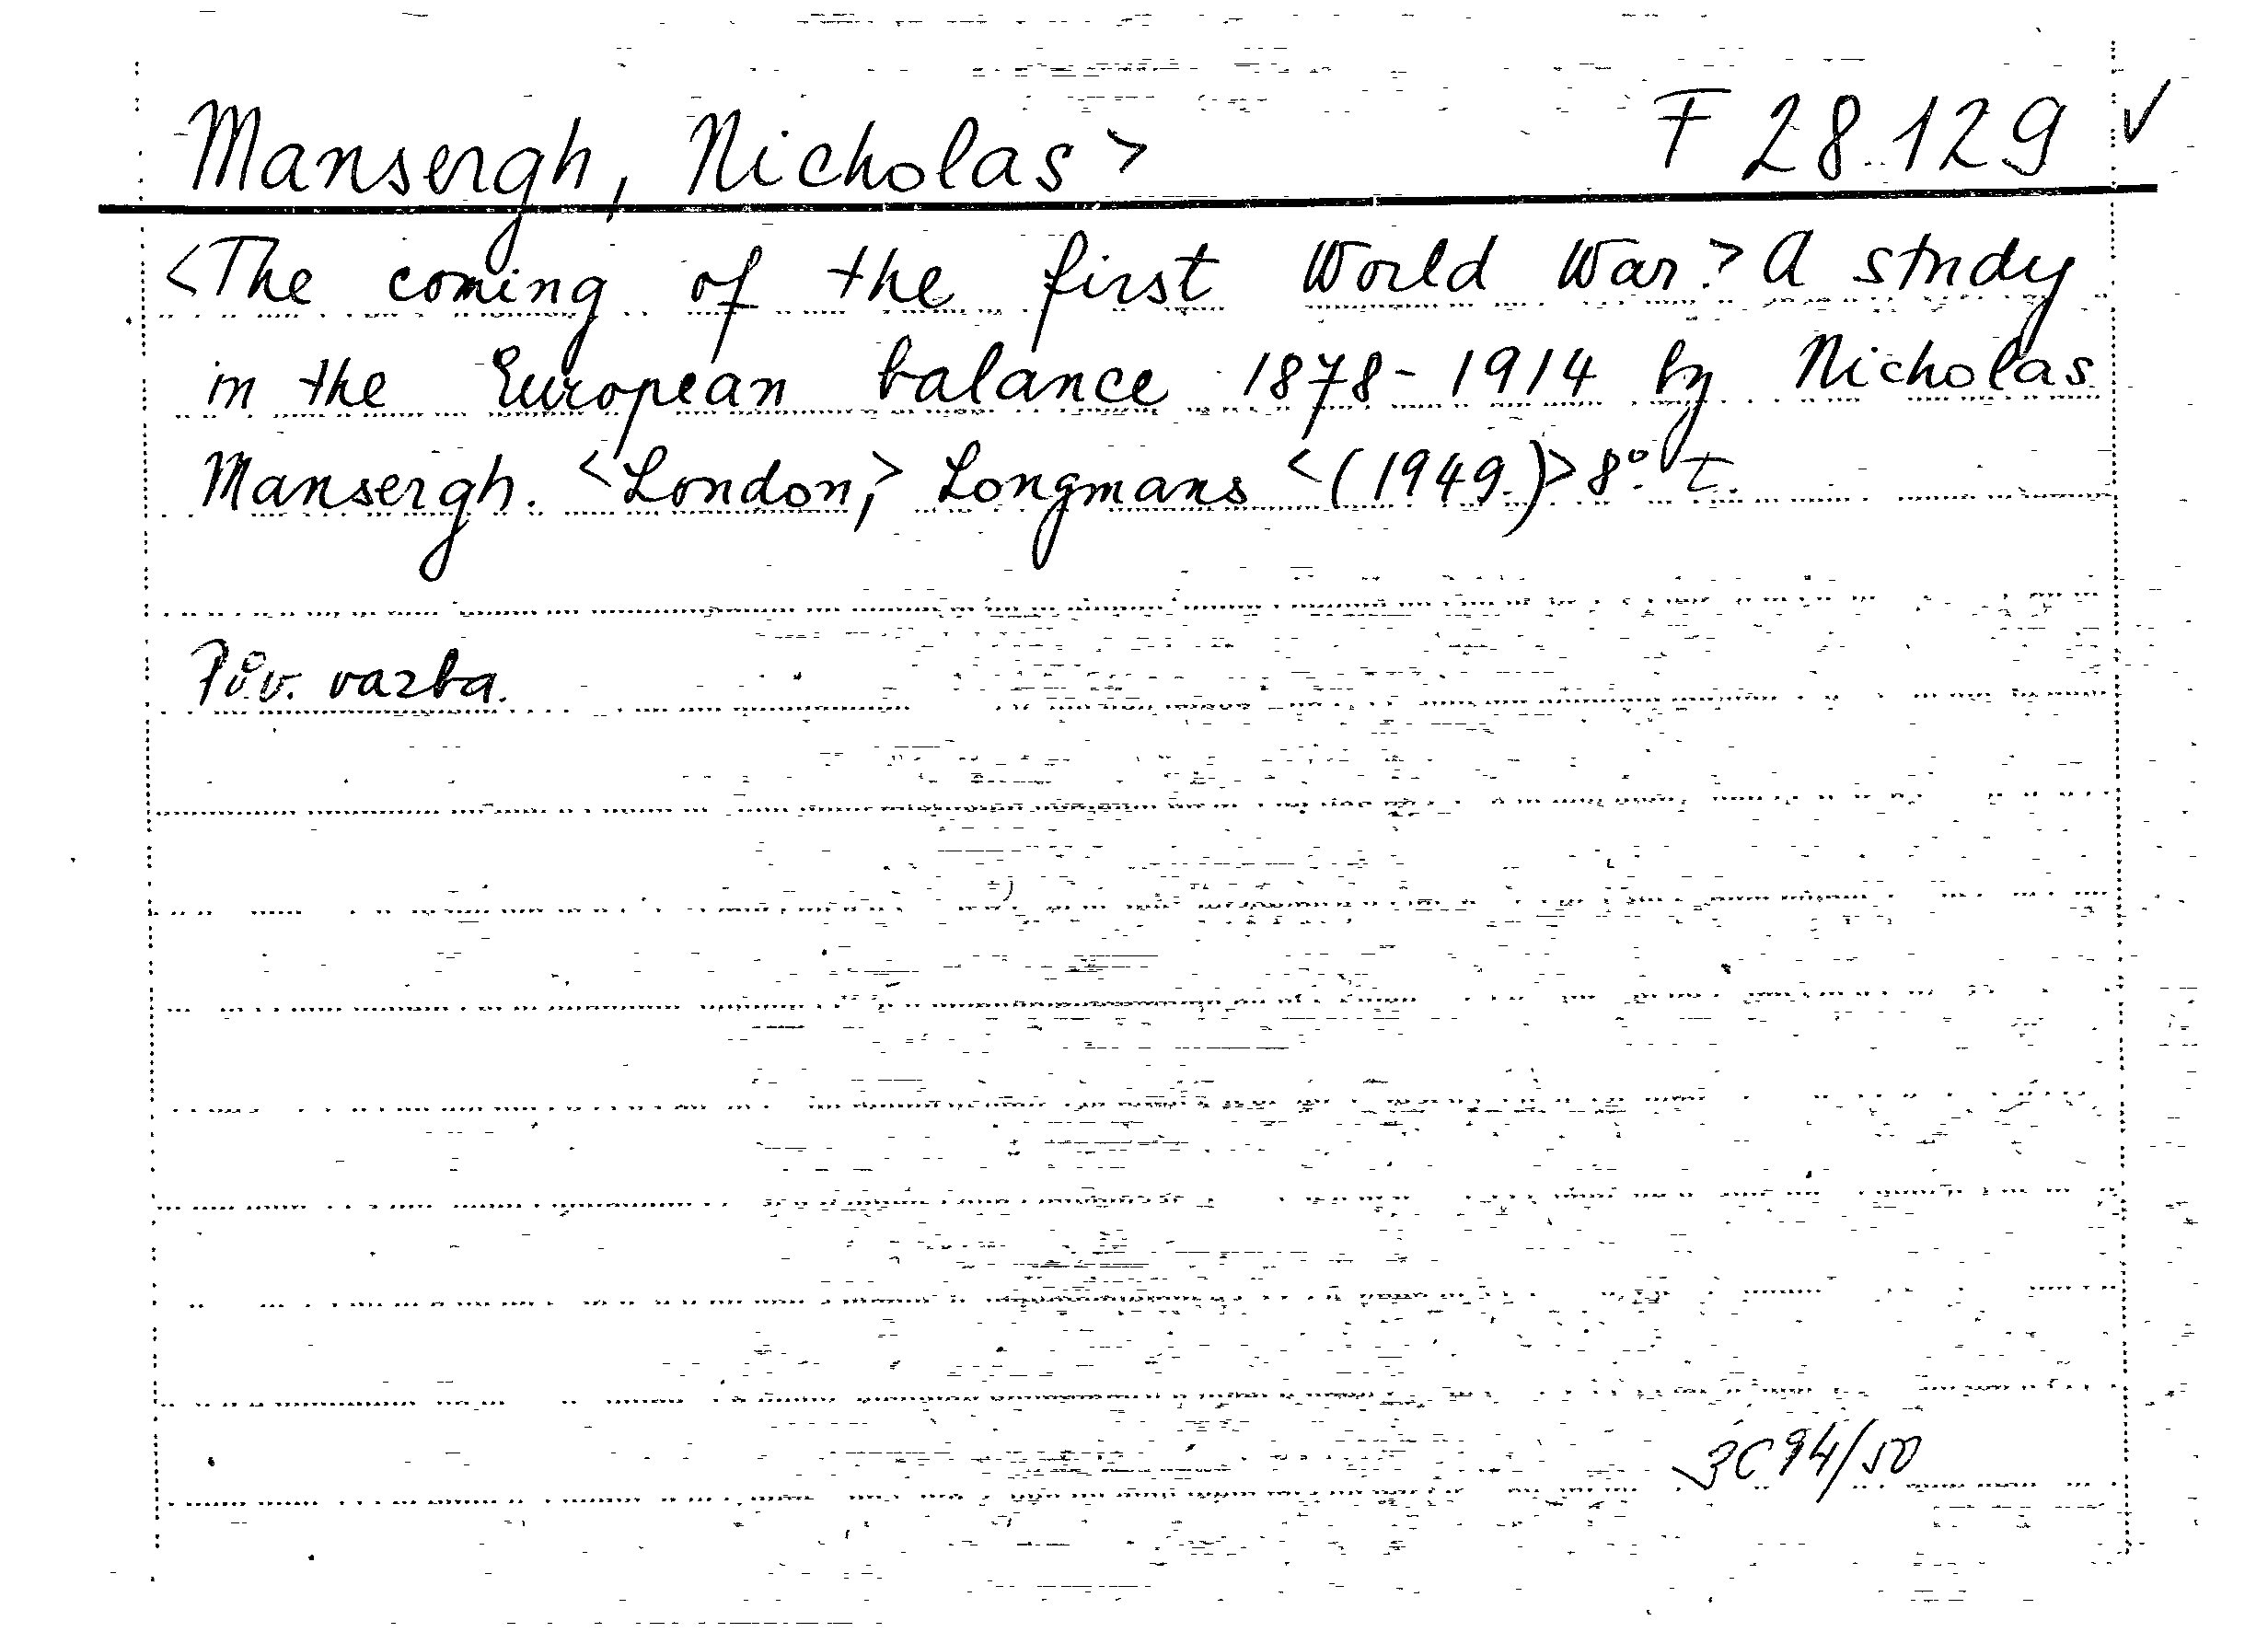 Mansergh, Nicholas > F 28.129 ✓
<The coming of the first World War.> A study
in the European balance 1878-1914 by Nicholas
Mansergh. <London,> Longmans <(1949.)> 8°. t.
Pův. vazba.
3C 94/50